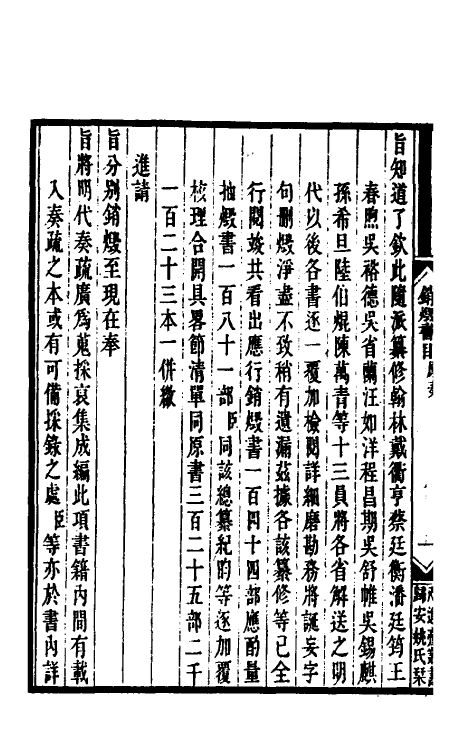 旨知道了欽此隨派纂修翰林戴衢亨蔡廷衡潘廷筠王
春煦吳裕德吳省蘭汪如洋程昌期吳舒帷吳錫麒
孫希旦陸伯焜陳萬青等十三員將各省解送之明
代以後各書逐一覆加檢閱詳細磨勘務將誕妄字
句刪燬淨盡不致稍有遺漏茲據各該纂修等已全
行閱竣共看出應行銷燬書一百四十四部應酌量
抽燬書一百八十一部臣同該總纂紀昀等逐加覆
核理合開具畧節清單同原書三百二十五部二千
一百二十三本一併繳
進請
旨分別銷燬至現在奉
旨將明代奏疏廣為蒐採裒集成編此項書籍內間有載
入奏疏之本或有可備採錄之處臣等亦於書內詳
銷燬書目
一
歸安姚氏栞